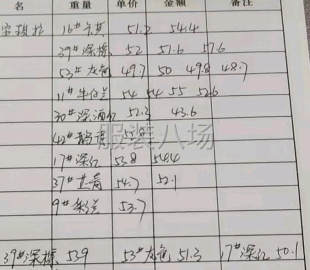 名 重量 单价 金额 备注
16# 51.2 54.4
39#深棕 52 51.6 57.6
53#灰色 49.7 50 49.8 48.7
11#牛仔兰 54 54 55 52.6
30#深酒红 52.3 43.6
42#
17#深红 53.8 54.4
37#藏青 54.7 52.1
9#彩兰 53.7
39#深棕 53.9 53#灰色 51.3 17#深红 50.1
服装八场